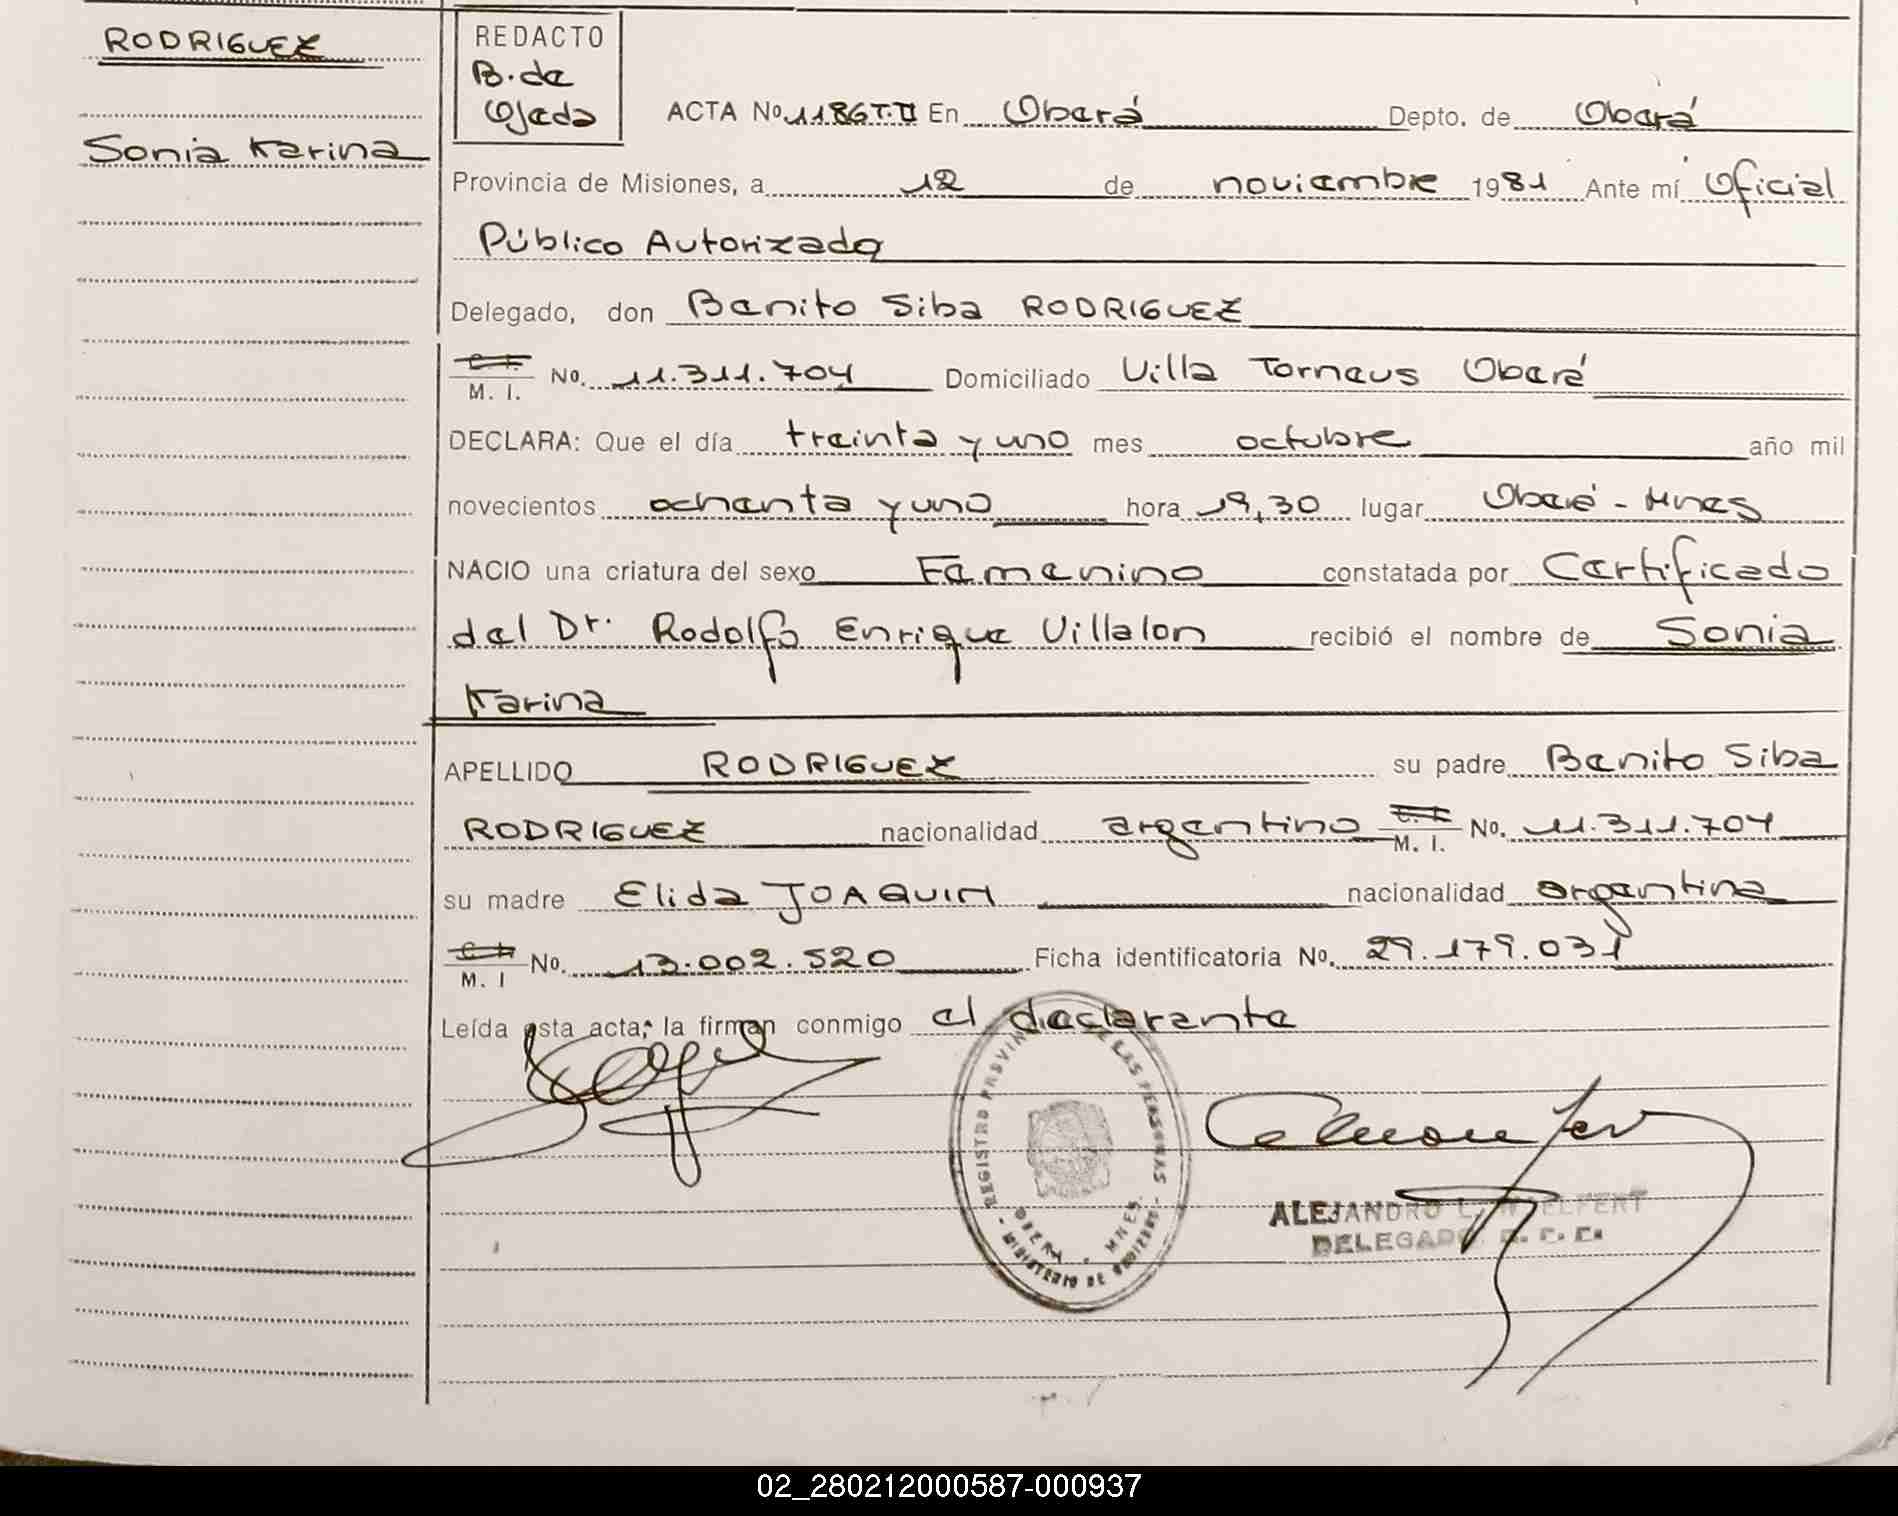 RODRIGUEZ
Sonia Karina
REDACTO
B. de
Ojeda
ACTA No. 1186 T.II En Oberá Depto. de Oberá
Provincia de Misiones, a 12 de noviembre 1981 Ante mí Oficial
Público Autorizado
Delegado, don Benito Siba RODRIGUEZ
C. I.
M. I. No. 11.311.704 Domiciliado Villa Torneus Oberá
DECLARA: Que el día treinta y uno mes octubre año mil
novecientos ochenta y uno hora 19,30 lugar Oberá - Mnes
NACIO una criatura del sexo Femenino constatada por Certificado
del Dr. Rodolfo Enrique Villalon recibió el nombre de Sonia
Karina
APELLIDO RODRIGUEZ su padre Benito Siba
RODRIGUEZ nacionalidad argentino C. I. M. I. No. 11.311.704
su madre Elida JOAQUIN nacionalidad argentina
C. I.
M. I No. 13.002.520 Ficha identificatoria No. 29.179.031
Leída esta acta, la firman conmigo el declarante
REGISTRO PROVINCIAL DE LAS PERSONAS
OBERA - MNES.
- MINISTERIO DE GOBIERNO -
ALEJANDRO L. WELFERT
DELEGADO
02_280212000587-000937